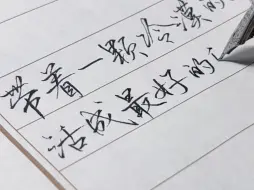 带着一颗冷漠的
活成最好的